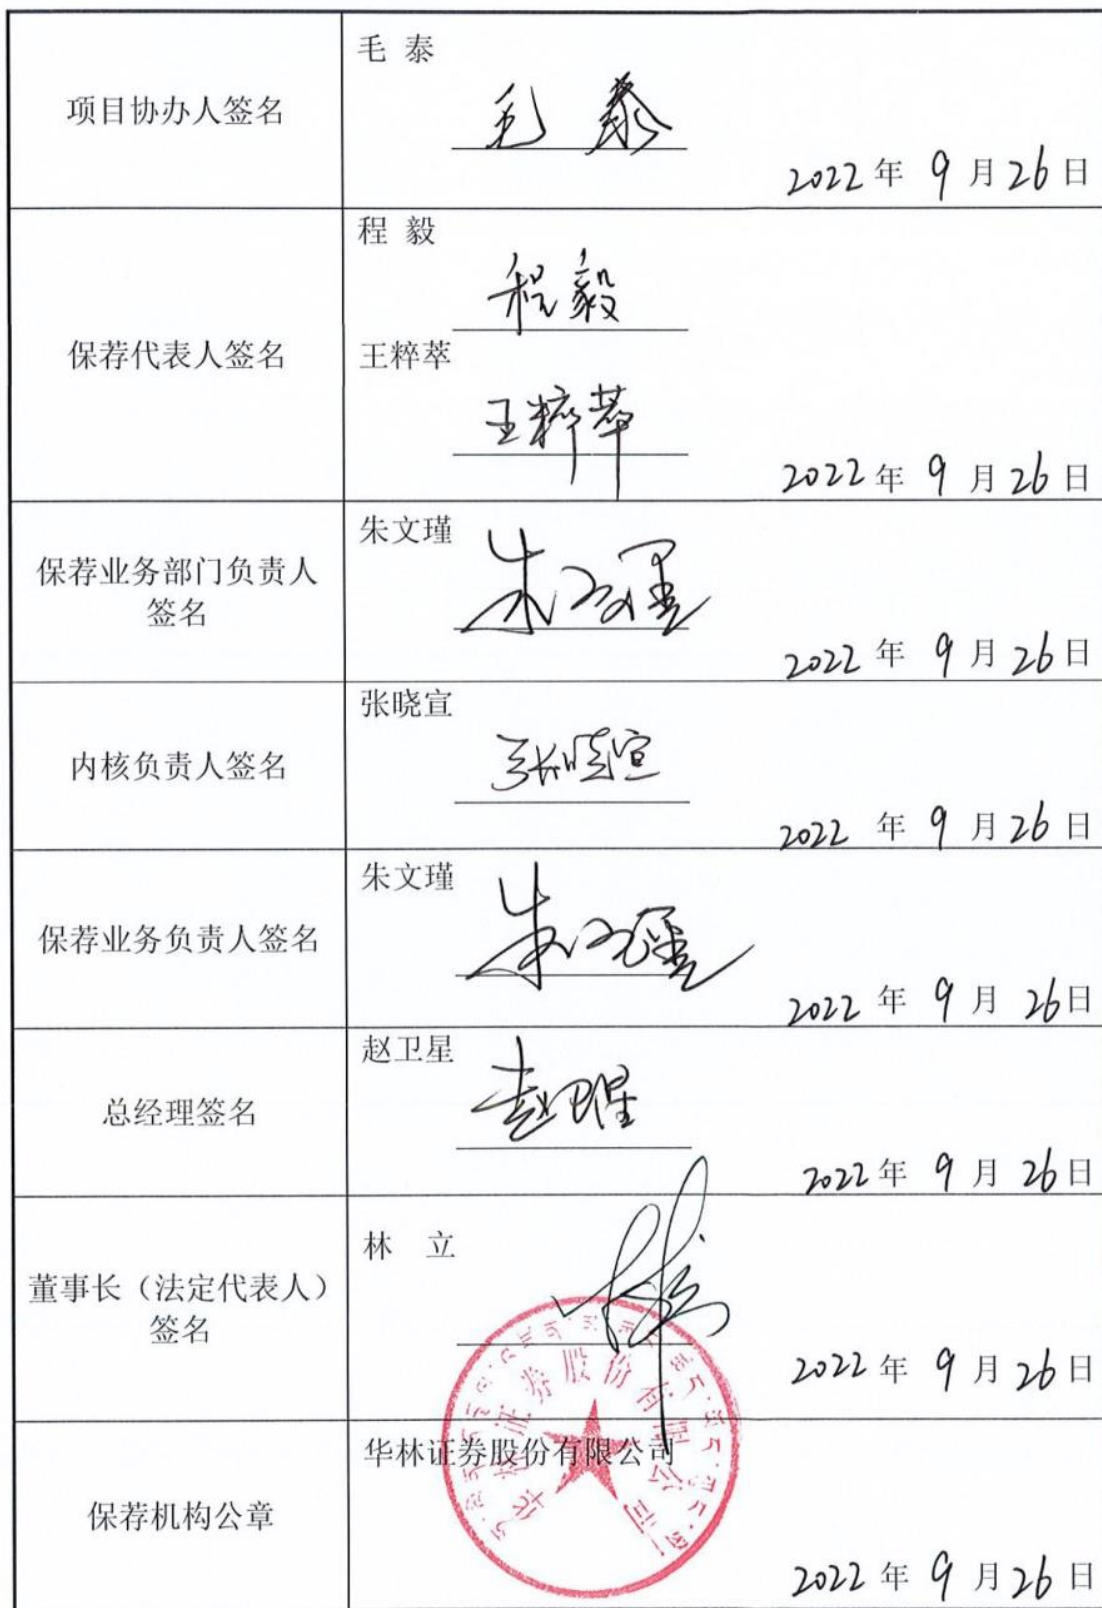 项目协办人签名
毛 泰
毛 泰
2022 年 9 月 26 日
保荐代表人签名
程 毅
程毅
王粹萃
王粹萃
2022 年 9 月 26 日
保荐业务部门负责人
签名
朱文瑾
朱文瑾
2022 年 9 月 26 日
内核负责人签名
张晓宣
张晓宣
2022 年 9 月 26 日
保荐业务负责人签名
朱文瑾
朱文瑾
2022 年 9 月 26 日
总经理签名
赵卫星
赵卫星
2022 年 9 月 26 日
董事长（法定代表人）
签名
林 立
林立
2022 年 9 月 26 日
保荐机构公章
华林证券股份有限公司
华林证券股份有限公司
2022 年 9 月 26 日